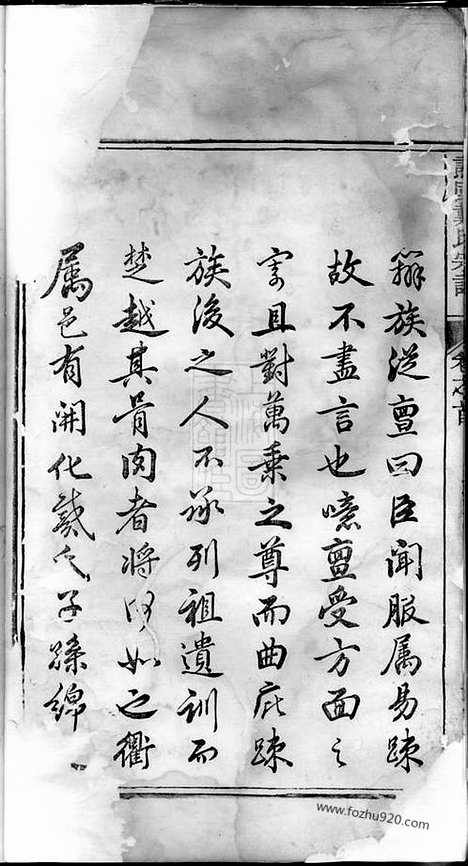 氏宗譜
卷之首
辭族從亶曰臣聞服属易踈
故不盡言也噫亶受方面之
寄且對萬乗之尊而曲庇踈
族後之人不承列祖遺訓而
楚越其骨肉者將何如之衢
属邑有開化龔氏子孫綿
www.fozhu920.com